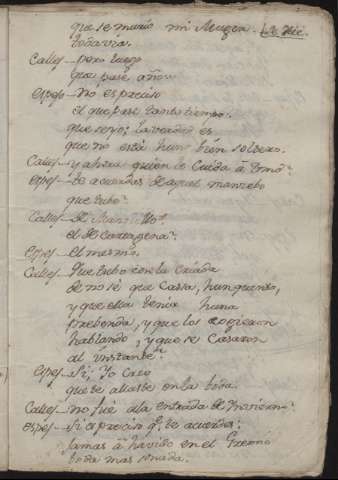 que se murio mi Muger.
todavia.
Calles — pero luego
que pase año
Espes — no es preciso
el que pase tanto tiempo.
que seyo; la verdad es
que no està hun bien soltero.
Calles — y ahora quien le Cuida à
Espes — te acuerdas de aquel mancebo
que tubo
Calles — de
el de Cartagena.
Espes — el mesmo.
Calles — Que tubo con la criada
de no sè que Casa, hun quento,
y que ella tenia huna
prebenda, y que los cogieron
hablando, y que se Casaron
al instante.
Espes — Si, Yo Creo
que te allaste en la boda.
Calles — no fuè à la entrada de Invierno.
Espes — Si à preciso q.e te acuerdas:
Jamas à havido en el Gremio
boda mas sonada.